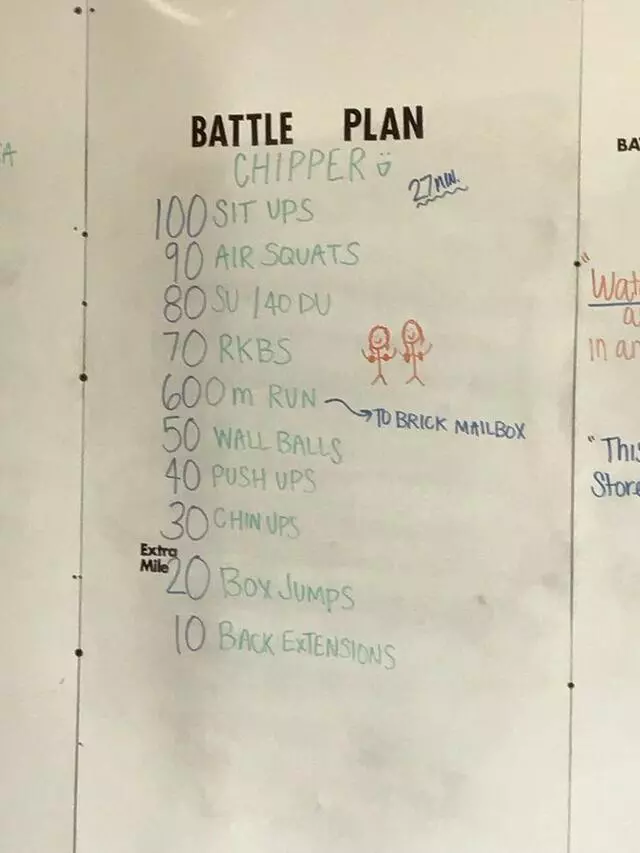 BATTLE PLAN
CHIPPER
27 MIN.
100 SIT UPS
90 AIR SQUATS
80 SU / 40 DU
70 RKBS
600m RUN → TO BRICK MAILBOX
50 WALL BALLS
40 PUSH UPS
30 CHIN UPS
Extra
Mile
20 BOX JUMPS
10 BACK EXTENSIONS
BA
in
"This
Store